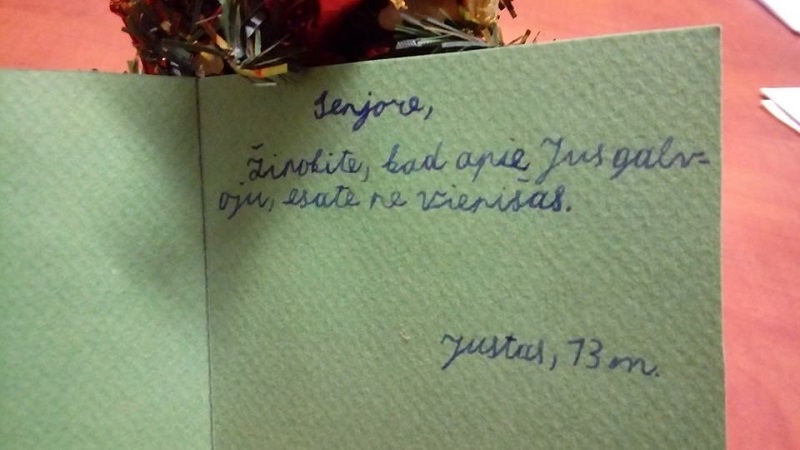 Senjore,
Žinokite, kad apie Jus galv-
oju, esate ne vienišas.
Justas, 13 m.